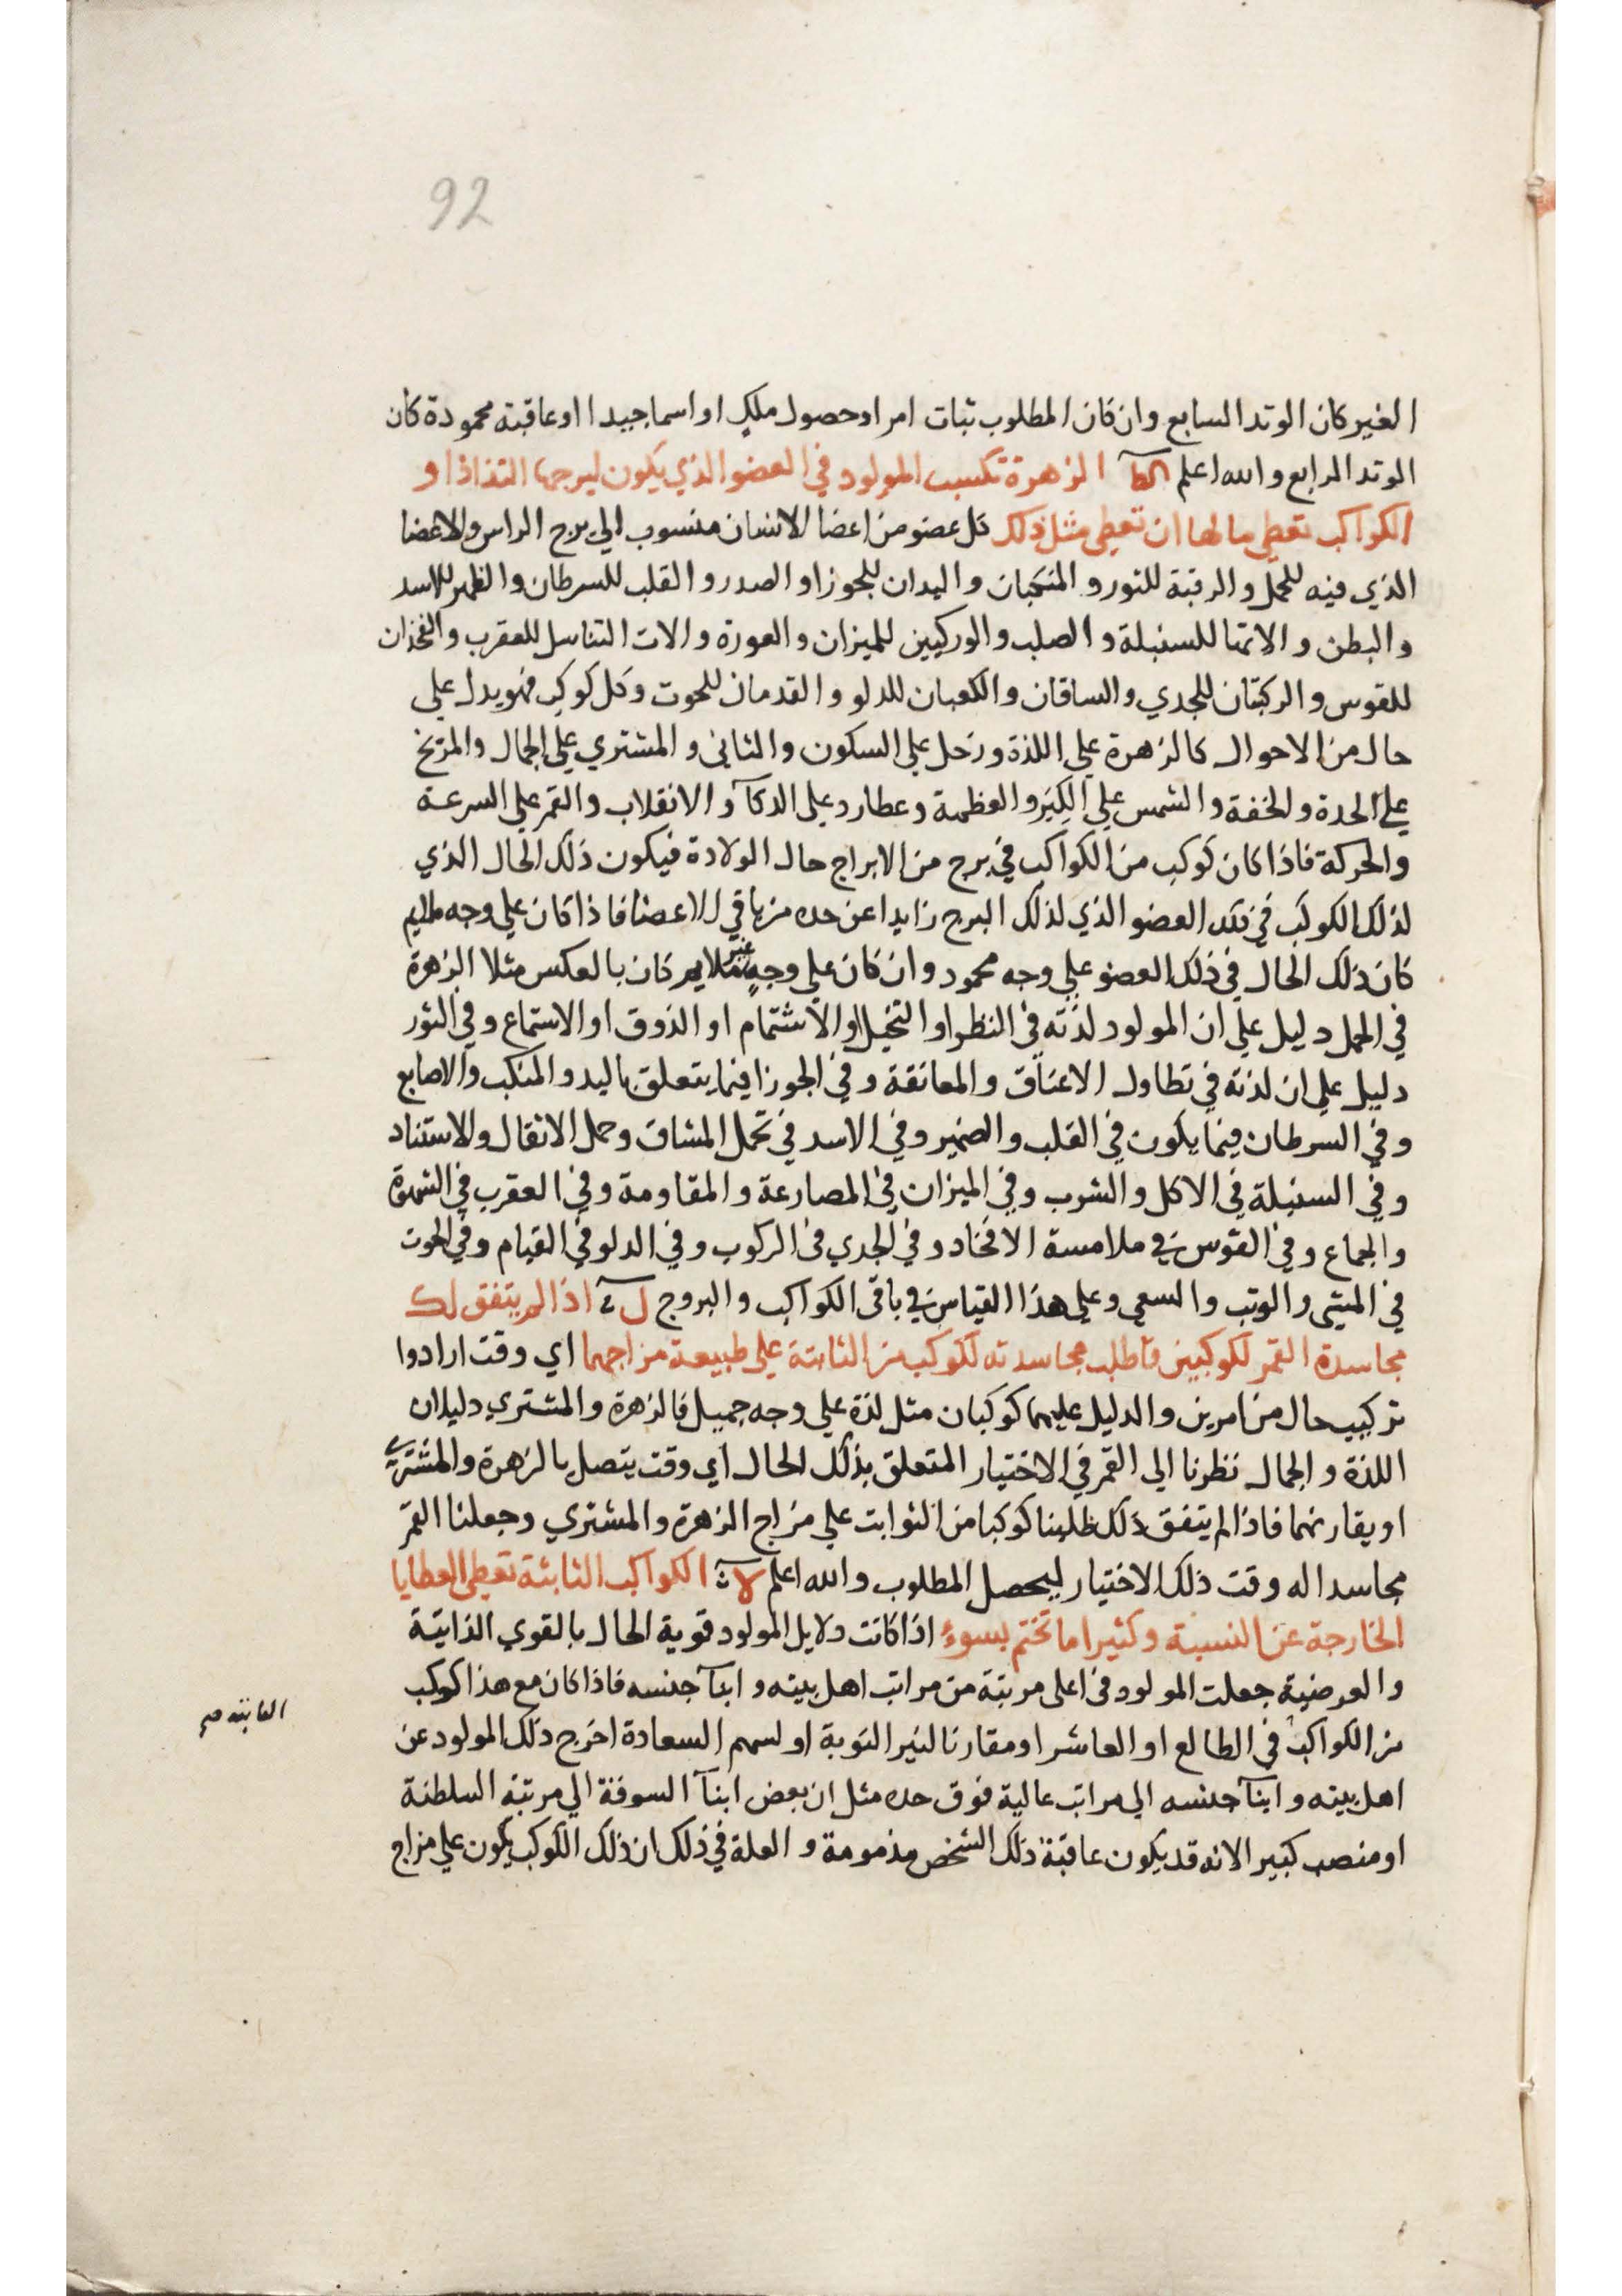 92
الغير كان الوتد السابع وان كان المطلوب ثبات امر او حصول ملك او اسما جيدا او عاقبة محمودة كان
الوتد الرابع والله اعلم الزهرة تكسب المولود في العضو الذي يكون لبرجها التذاذا و
الكواكب تعطي ما لها ان تعطي مثل ذلك كل عضو من اعضا الانسان منسوب الي برج الراس والاعضا
الذي فيه للحمل والرقبة للثور و المنكبان واليدان للجوزا و الصدر و القلب للسرطان والظهر للاسد
والبطن و الامعا للسنبلة و الصلب والوركيين للميزان و العورة و الات التناسل للعقرب والفخذان
للقوس و الركبتان للجدي والساقان والكعبان للدلو و القدمان للحوت وكل كوكب فهو يدل علي
حال من الاحوال كالزهرة علي اللذة وزحل علي السكون والثاني و المشتري علي الجمال والمريخ
علي الحدة والخفة والشمس علي الكبر والعظمة وعطارد علي الذكآ و الانقلاب والقمر علي السرعة
والحركة فاذا كان كوكب من الكواكب في برج من الابراج حال الولادة فيكون ذلك الحال الذي
لذلك الكوكب في ذلك العضو الذي لذلك البرج زايدا عن حده من باقي الاعضا فاذا كان علي وجه ملايم
كان ذلك الحال في ذلك العضو علي وجه محمود وان كان علي وجه غير ملايم كان بالعكس مثلا الزهرة
في الحمل دليل علي ان المولود لذته في النظر او التخيل او الاشتمام او الذوق او الاستماع وفي الثور
دليل علي ان لذته في تطاول الاعناق والمعانقة وفي الجوزا فيما يتعلق باليد والمنكب والاصابع
وفي السرطان فيما يكون في القلب والضمير وفي الاسد في تحمل المشاق وحمل الاثقال والاستناد
وفي السنبلة في الاكل والشرب وفي الميزان في المصارعة والمقاومة وفي العقرب في الشهوة
والجماع وفي القوس في ملامسة الافخاد وفي الجدي في الركوب وفي الدلو في القيام وفي الحوت
في المشي والوثب والسعي وعلي هذا القياس في باقي الكواكب والبروج ل اذا لم يتفق لك
مجاسدة القمر لكوكبين فاطلب مجاسدته لكوكب من الثابتة علي طبيعة مزاجهما اي وقت ارادوا
تركيب حال من امرين والدليل عليهما كوكبان مثل لذة علي وجه جميل فالزهرة والمشتري دليلان
اللذة و الجمال نظرنا الي القمر في الاختيار المتعلق بذلك الحال اي وقت يتصل بالزهرة والمشتري
او يقارنهما فاذا لم يتفق ذلك طلبنا كوكبا من الثوابت علي مزاج الزهرة والمشتري وجعلنا القمر
مجاسدا له وقت ذلك الاختيار ليحصل المطلوب والله اعلم لا الكواكب الثابتة تعطي العطايا
الخارجة عن النسبة وكثيرا ما تختم بسوء اذا كانت دلايل المولود قوية الحال بالقوي الذاتية
والعرضية جعلت المولود في اعلي مرتبة من مراتب اهل بيته و ابنآ جنسه فاذا كان مع هذا كوكب
من الكواكب في الطالع او العاشر او مقارنا لنير النوبة او لسهم السعادة اخرج ذلك المولود عن
اهل بيته وابنآ جنسه الي مراتب عالية فوق حده مثل ان بعض ابنآ السوقة الي مرتبة السلطنة
او منصب كبير الا انه قد يكون عاقبة ذلك الشخص مذمومة و العلة في ذلك ان ذلك الكوكب يكون علي مزاج